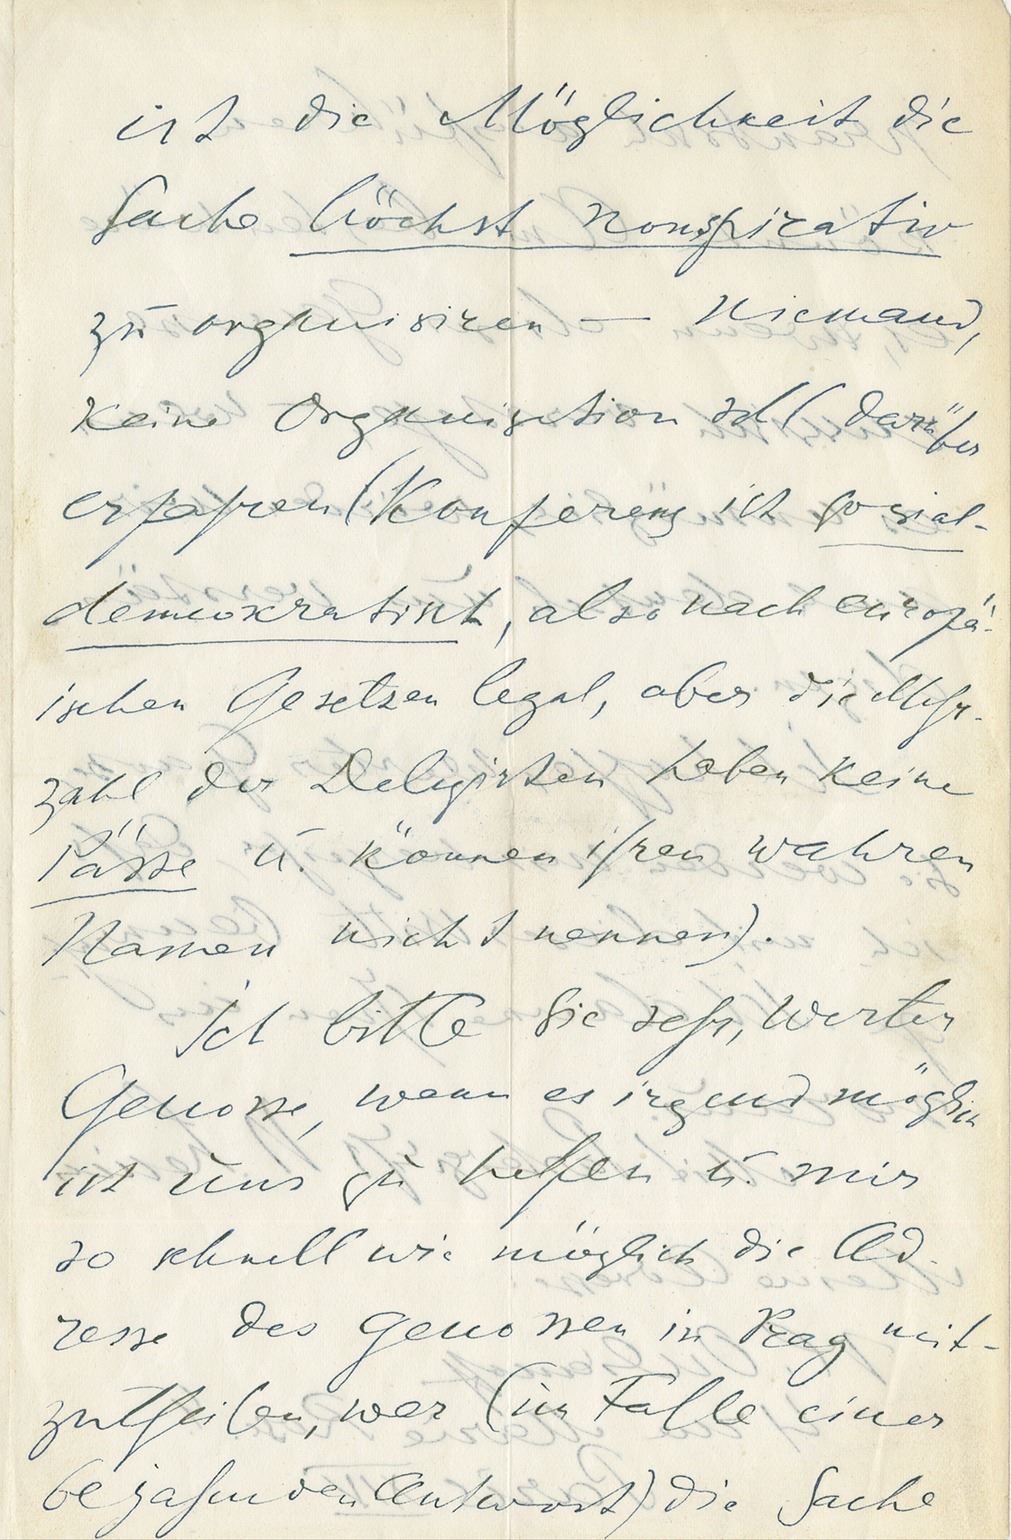 ist die Möglichkeit die
Sache höchst konspirativ
zu organisiren — Niemand,
keine Organisation soll darüber
erfahren (Konferenz ist sozial-
demokratisch, also nach europä-
ischen Gesetzen legal, aber die Mehr-
zahl der Delegirten haben keine
Pässe u. können ihren wahren
Namen nicht nennen).
Ich bitte Sie sehr, werter
Genosse, wenn es irgend möglich
ist uns zu helfen u. mir
so schnell wie möglich die Ad-
resse des Genossen in Prag mit-
zutheilen, wer (im Falle einer
bejahenden Antwort) die Sache